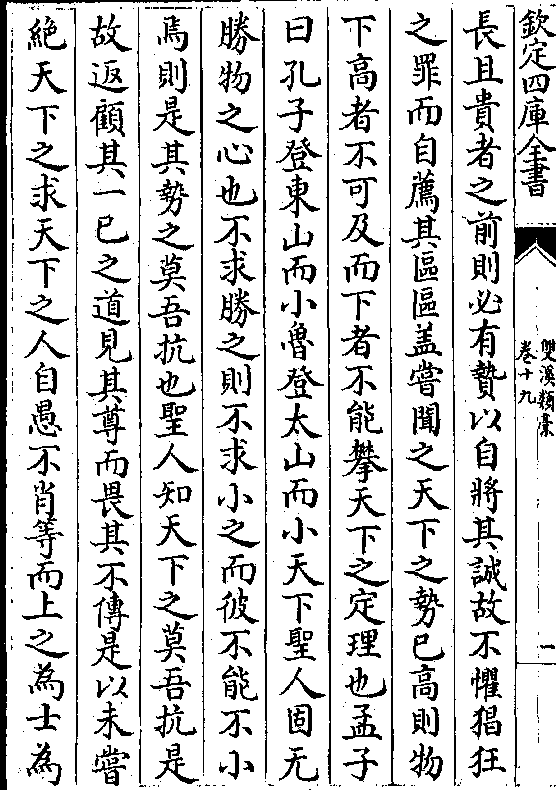 欽定四庫全書
雙溪類稾
卷十九
一
長且貴者之前則必有贄以自將其誠故不懼猖狂
之罪而自薦其區區盖嘗聞之天下之勢已高則物
下高者不可及而下者不能攀天下之定理也孟子
曰孔子登東山而小魯登太山而小天下聖人固无
勝物之心也不求勝之則不求小之而彼不能不小
焉則是其勢之莫吾抗也聖人知天下之莫吾抗是
故返顧其一已之道見其尊而畏其不傳是以未嘗
絶天下之求天下之人自愚不肖等而上之為士為